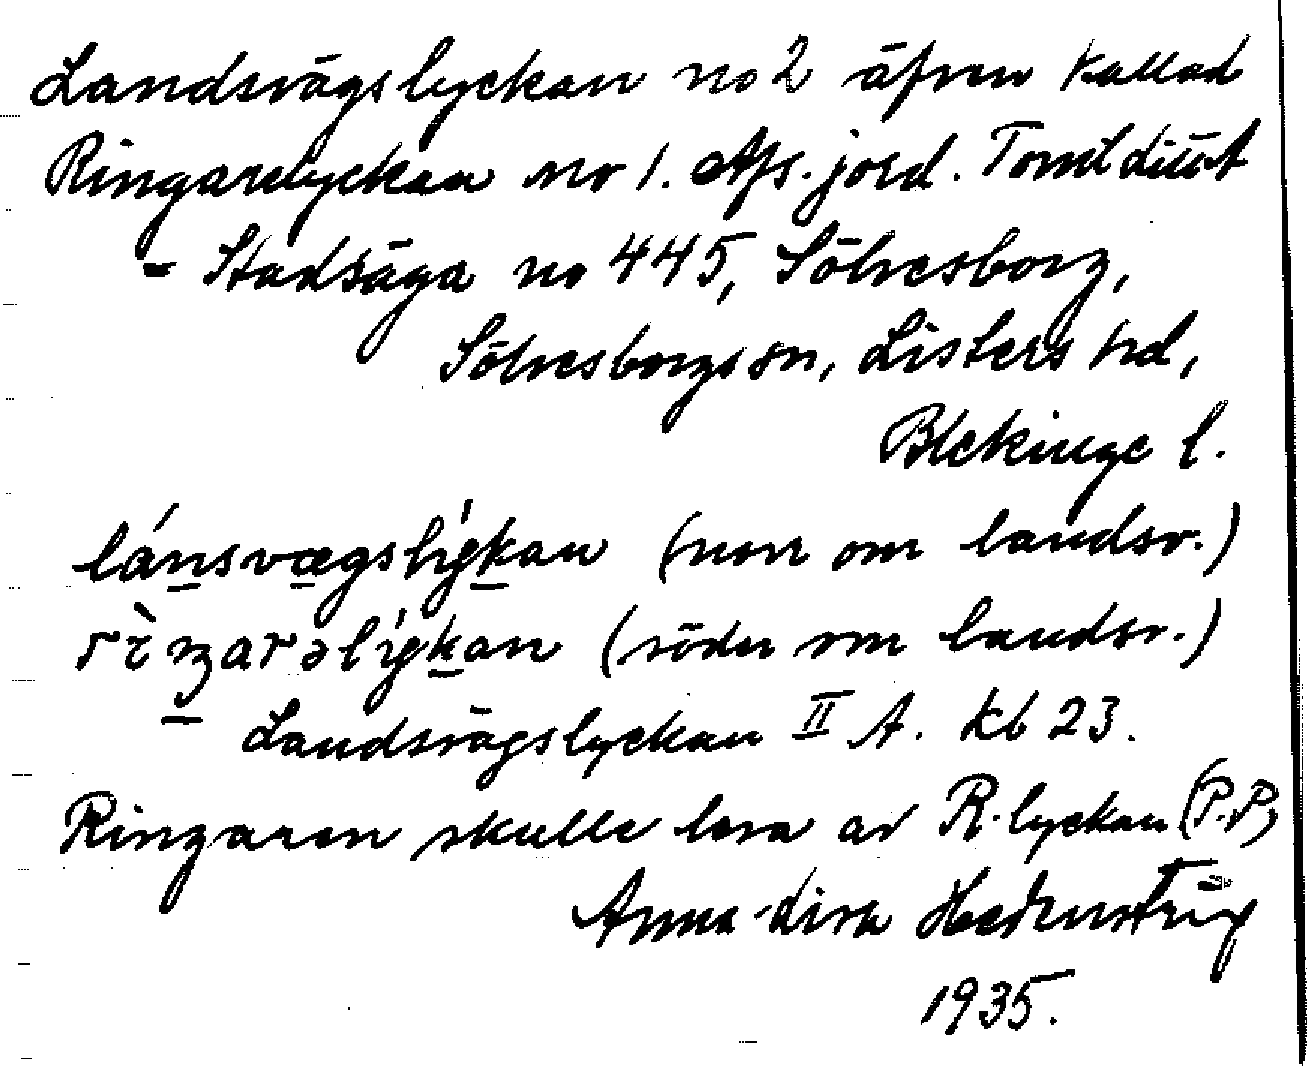 Landsvägslyckan no 2 äfven kallad
Ringarelyckan no 1. Afs. jord. Tomt
= Stadsäga no 445, Sölvesborg,
Sölvesborgs sn, Listers hd,
Blekinge l.
lánsvægslýkan (norr om landsv.)
rìŋarəlýkan (söder om landsv.)
Landsvägslyckan II A. kb 23.
Ringaren skulle leva av R.lyckan (P.P)
Anna-Lisa
1935.